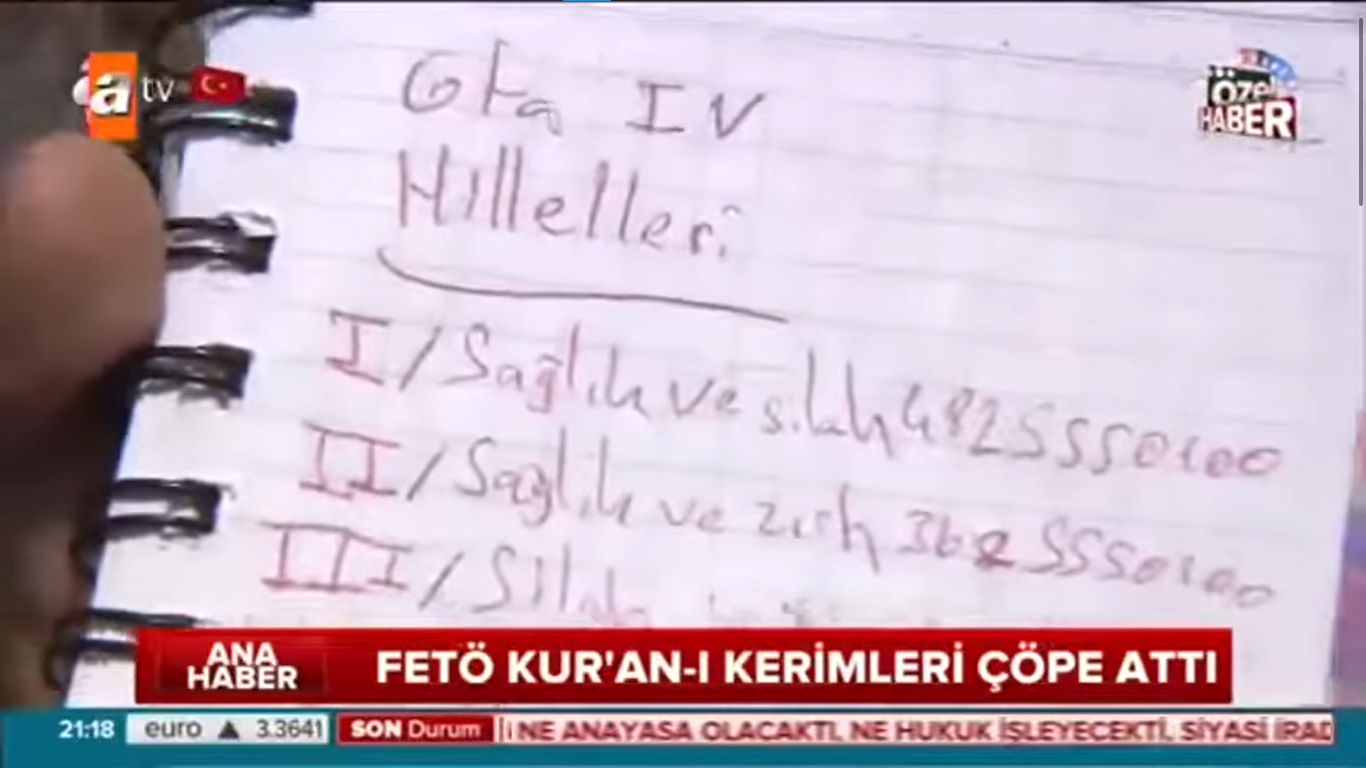 a tv
ÖZEL
HABER
Gta IV
Hıllelleri
I/Sağlık ve silah 4825550100
II/Sağlık ve zırh 3625550100
III/Silah
ANA
HABER
FETÖ KUR'AN-I KERİMLERİ ÇÖPE ATTI
21:18 euro ▲ 3.3641 SON Durum NE ANAYASA OLACAKTI, NE HUKUK İŞLEYECEKTİ, SİYASİ İRAD